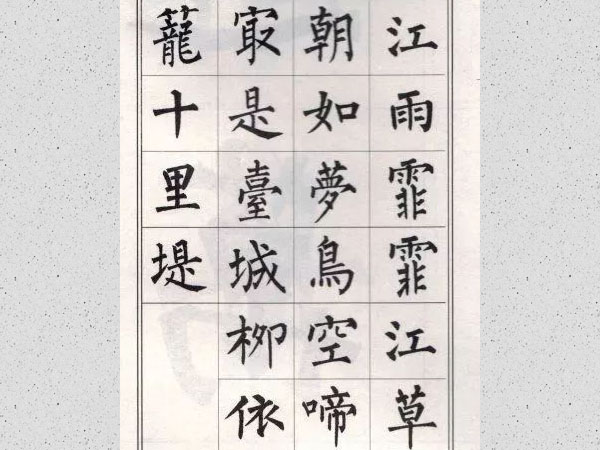 江雨霏霏江草
朝如夢鳥空啼
㝡是臺城柳依
籠十里堤